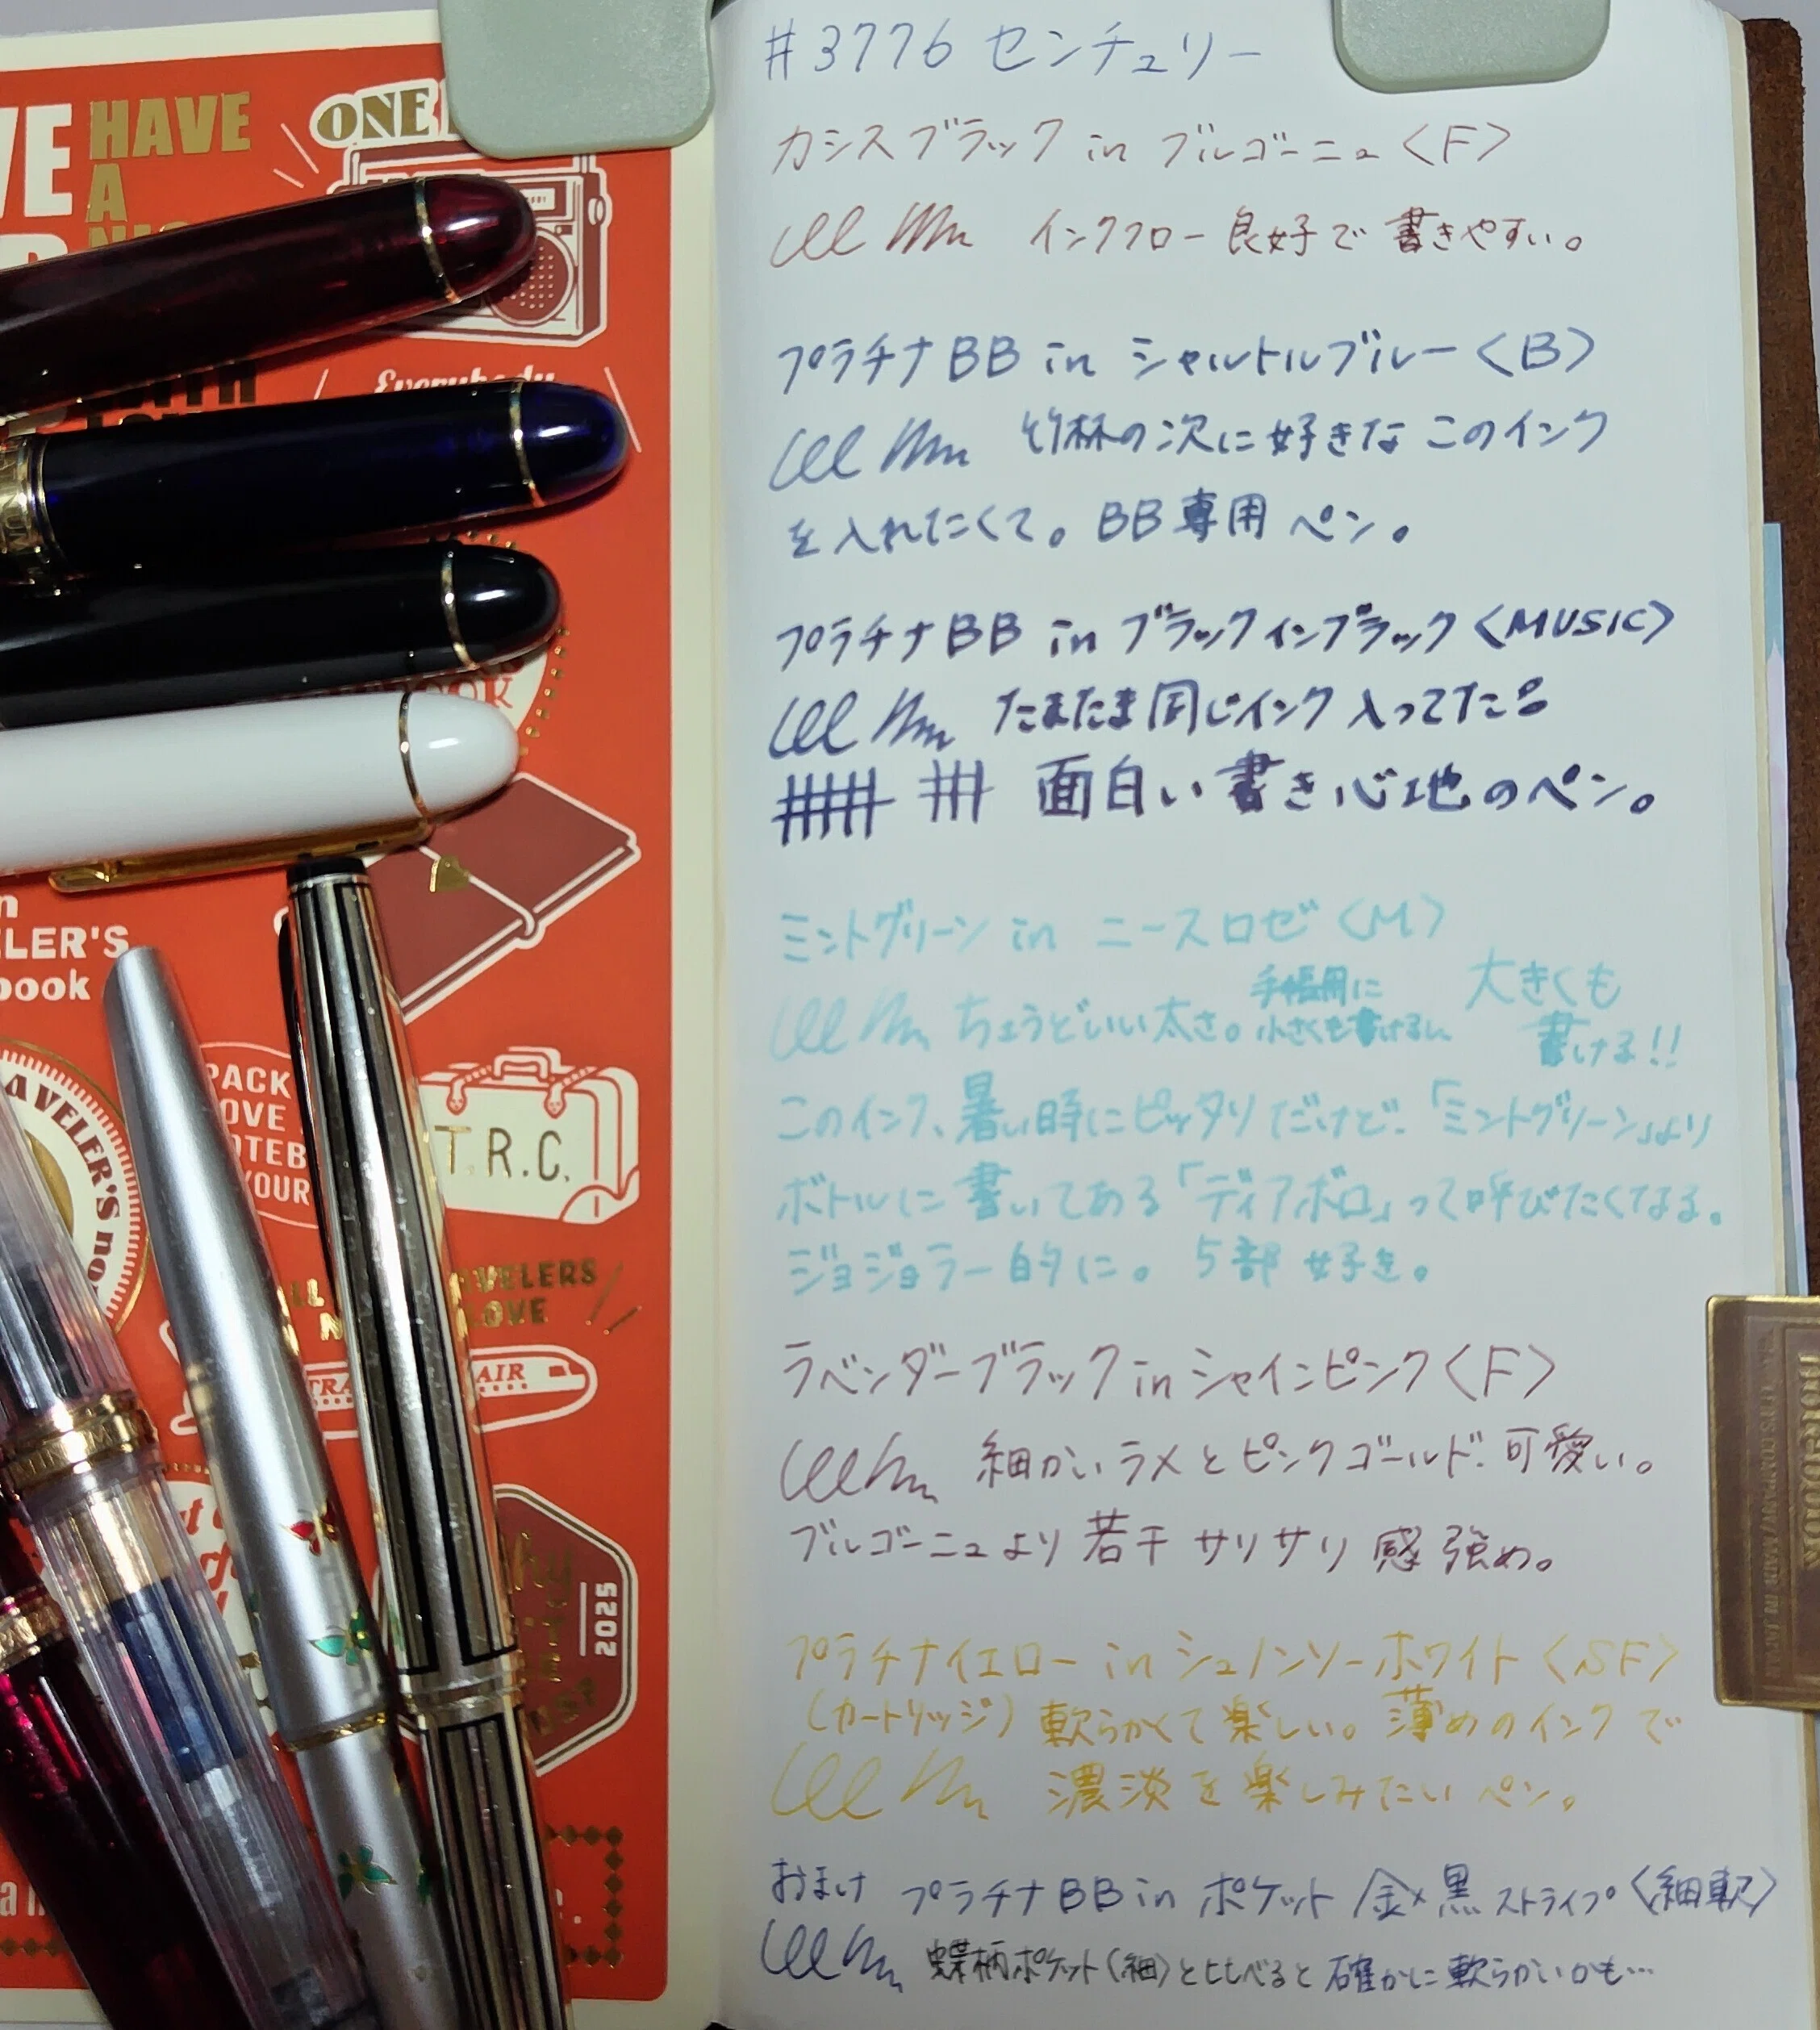 VE HAVE
A
ONE
WITH
Everybody
in
ELER'S
book
AVELER'S no
PACK
OVE
OTEB
YOUR
T.R.C.
ALL
VELERS
LOVE
TRA
AIR
2025
#3776 センチュリー
カシスブラック in ブルゴーニュ〈F〉
インクフロー良好で書きやすい。
プラチナBB in シャルトルブルー〈B〉
竹林の次に好きなこのインク
を入れたくて。BB専用ペン。
プラチナBB in ブラックインブラック〈MUSIC〉
たまたま同じインク入ってた。
面白い書き心地のペン。
ミントグリーン in ニースロゼ〈M〉
ちょうどいい太さ。手帳用に
小さくも書けるし
大きくも
書ける!!
このインク、暑い時にピッタリだけど、「ミントグリーン」より
ボトルに書いてある「ディアボロ」って呼びたくなる。
ジョジョラー的に。5部好き。
ラベンダーブラック in シャインピンク〈F〉
細かいラメとピンクゴールド、可愛い。
ブルゴーニュより若干サリサリ感強め。
プラチナイエロー in シュノンソーホワイト〈SF〉
(カートリッジ) 軟らかくて楽しい。薄めのインクで
濃淡を楽しみたいペン。
おまけ プラチナBB in ポケット 金×黒ストライプ〈細軟〉
蝶柄ポケット(細)と比べると確かに軟らかいかも…